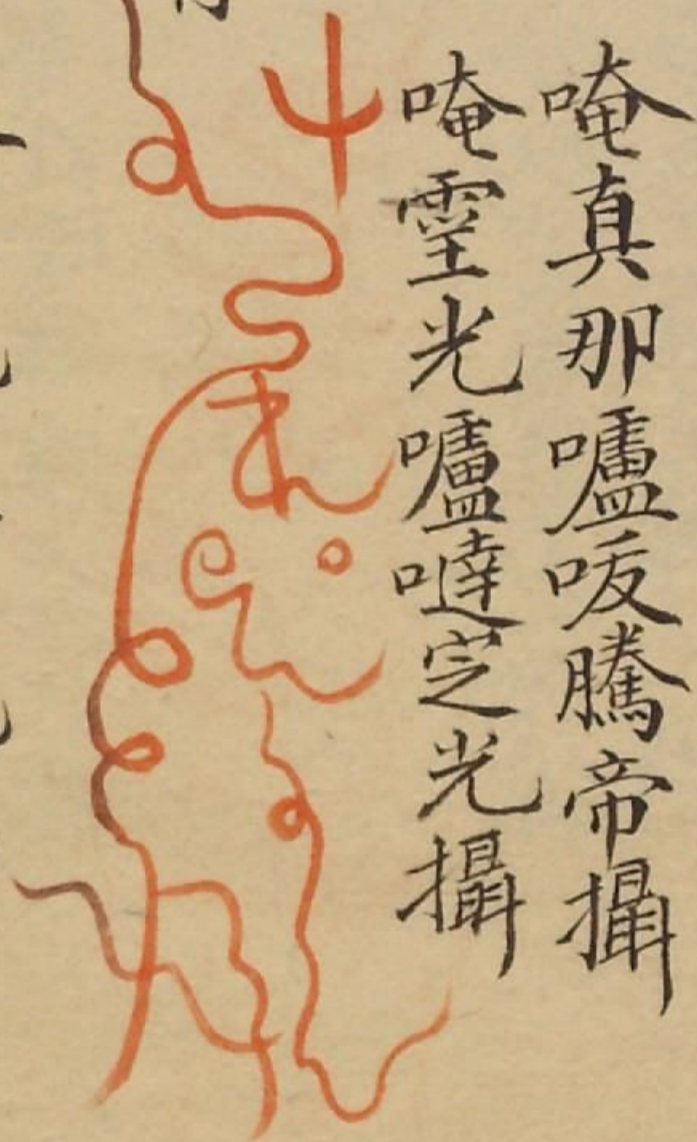 唵真那嚧騰帝攝
唵霊光嚧噠㝎光攝